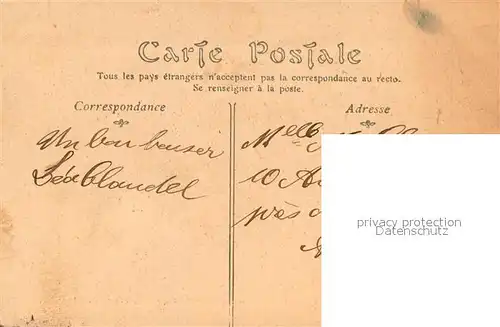 Carte Postale
Tous les pays étrangers n'acceptent pas la correspondance au recto.
Se renseigner à la poste.
Correspondance
Adresse
Un bon baiser
Léa Claudel
Melle
10 A
près
privacy protection
Datenschutz